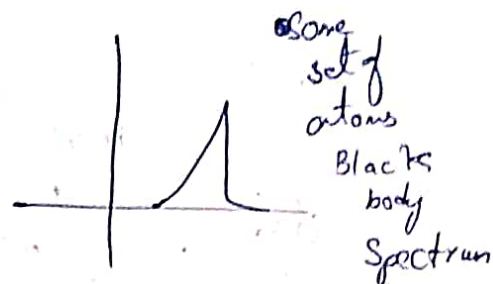 Some
set of
atoms
Black
body
Spectrum